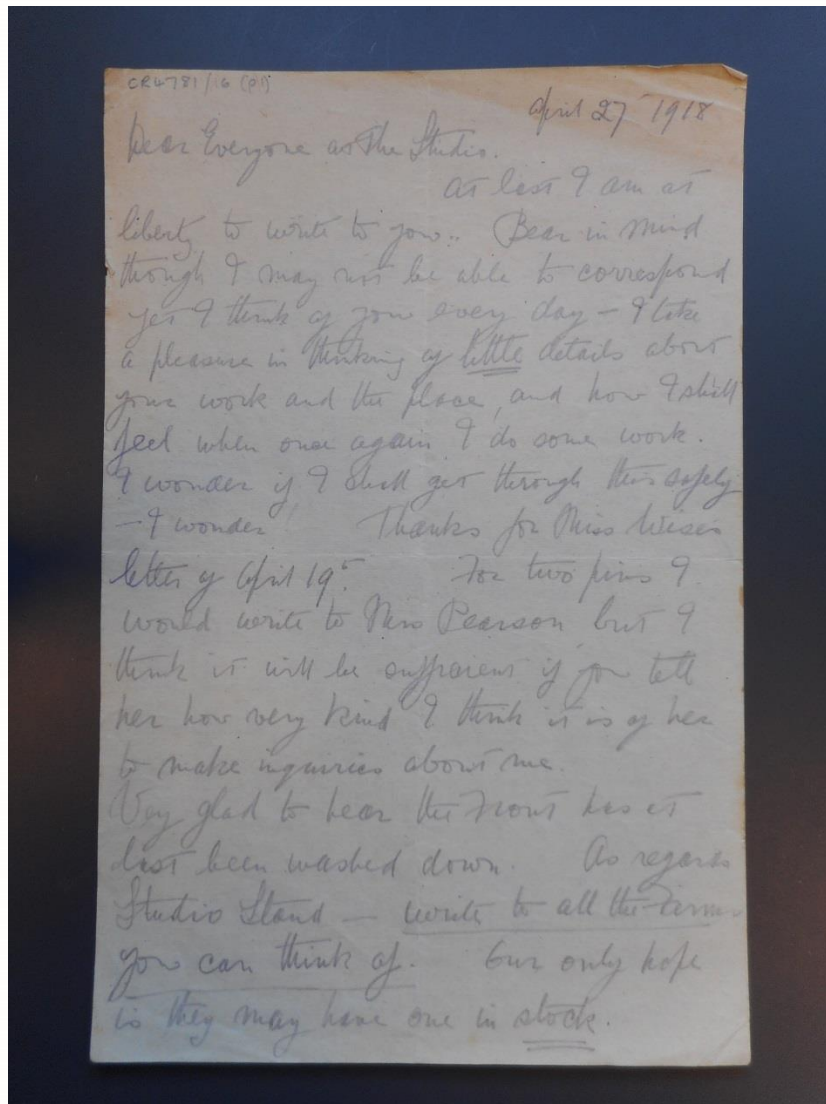 CR4781/16 (P1)
April 27 1918
Dear Everyone at the Studio.
At last I am at
liberty to write to you.. Bear in mind
though I may not be able to correspond
yet I think of you every day – I take
a pleasure in thinking of little details about
your work and the place, and how I shall
feel when once again I do some work.
I wonder if I shall get through this safely
– I wonder! Thanks for Miss
letter of April 19th. For two pins I
would write to Mrs Pearson but I
think it will be sufficient if you tell
her how very kind I think it is of her
to make inquiries about me.
Very glad to hear the Front has at
last been washed down. As regards
Studio Stand – write to all the Firms
you can think of. Our only hope
is they may have one in stock.